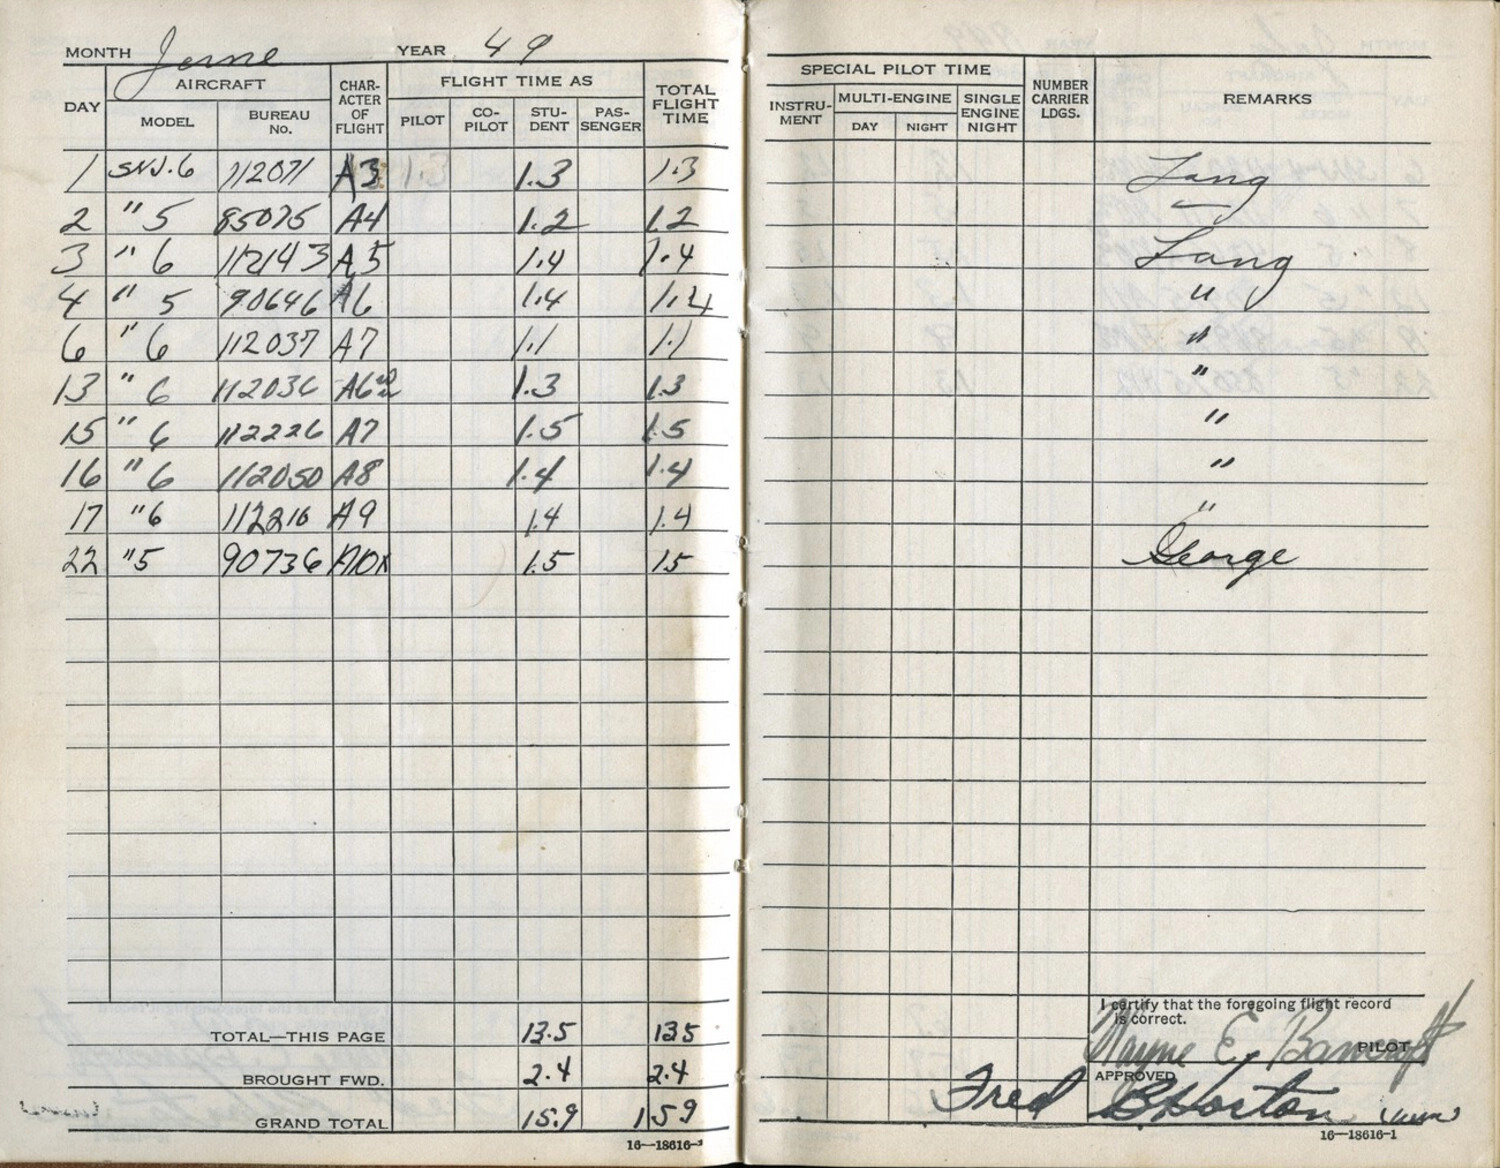 MONTH June YEAR 49
DAY AIRCRAFT MODEL BUREAU NO. CHAR-ACTER OF FLIGHT FLIGHT TIME AS PILOT CO-PILOT STU-DENT PAS-SENGER TOTAL FLIGHT TIME
1 SNJ.6 112071 A3 1.3 1.3 1.3
2 " 5 85075 A4 1.2 1.2
3 " 6 112143 A5 1.4 1.4
4 " 5 90646 A6 1.4 1.4
6 " 6 112037 A7 1.1 1.1
13 " 6 112036 A6 1.3 1.3
15 " 6 112226 A7 1.5 1.5
16 " 6 112050 A8 1.4 1.4
17 " 6 112216 A9 1.4 1.4
22 " 5 90736 A10X 1.5 15
TOTAL—THIS PAGE 13.5 135
BROUGHT FWD. 2.4 2.4
GRAND TOTAL 15.9 159
16—18616-1
SPECIAL PILOT TIME INSTRU-MENT MULTI-ENGINE DAY NIGHT SINGLE ENGINE NIGHT NUMBER CARRIER LDGS. REMARKS
Lang
Lang
"
"
"
"
"
"
George
I certify that the foregoing flight record
is correct.
Wayne E. Bancroft PILOT
APPROVED
Fred B Horton
16—18616-1